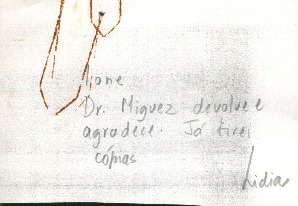 Ilone
Dr. Miguez devolve e
agradece. Já tirei
cópias
Lidia